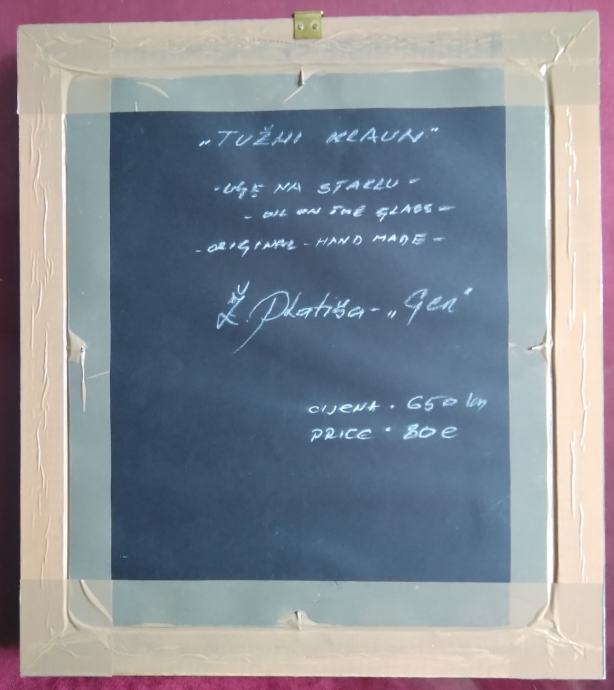 „TUŽNI KLAUN"
- ULJE NA STAKLU -
- OIL ON THE GLASS -
- ORIGINAL - HAND MADE -
Ž. Platiša - „Gea"
CIJENA · 650 kn
PRICE · 80 e